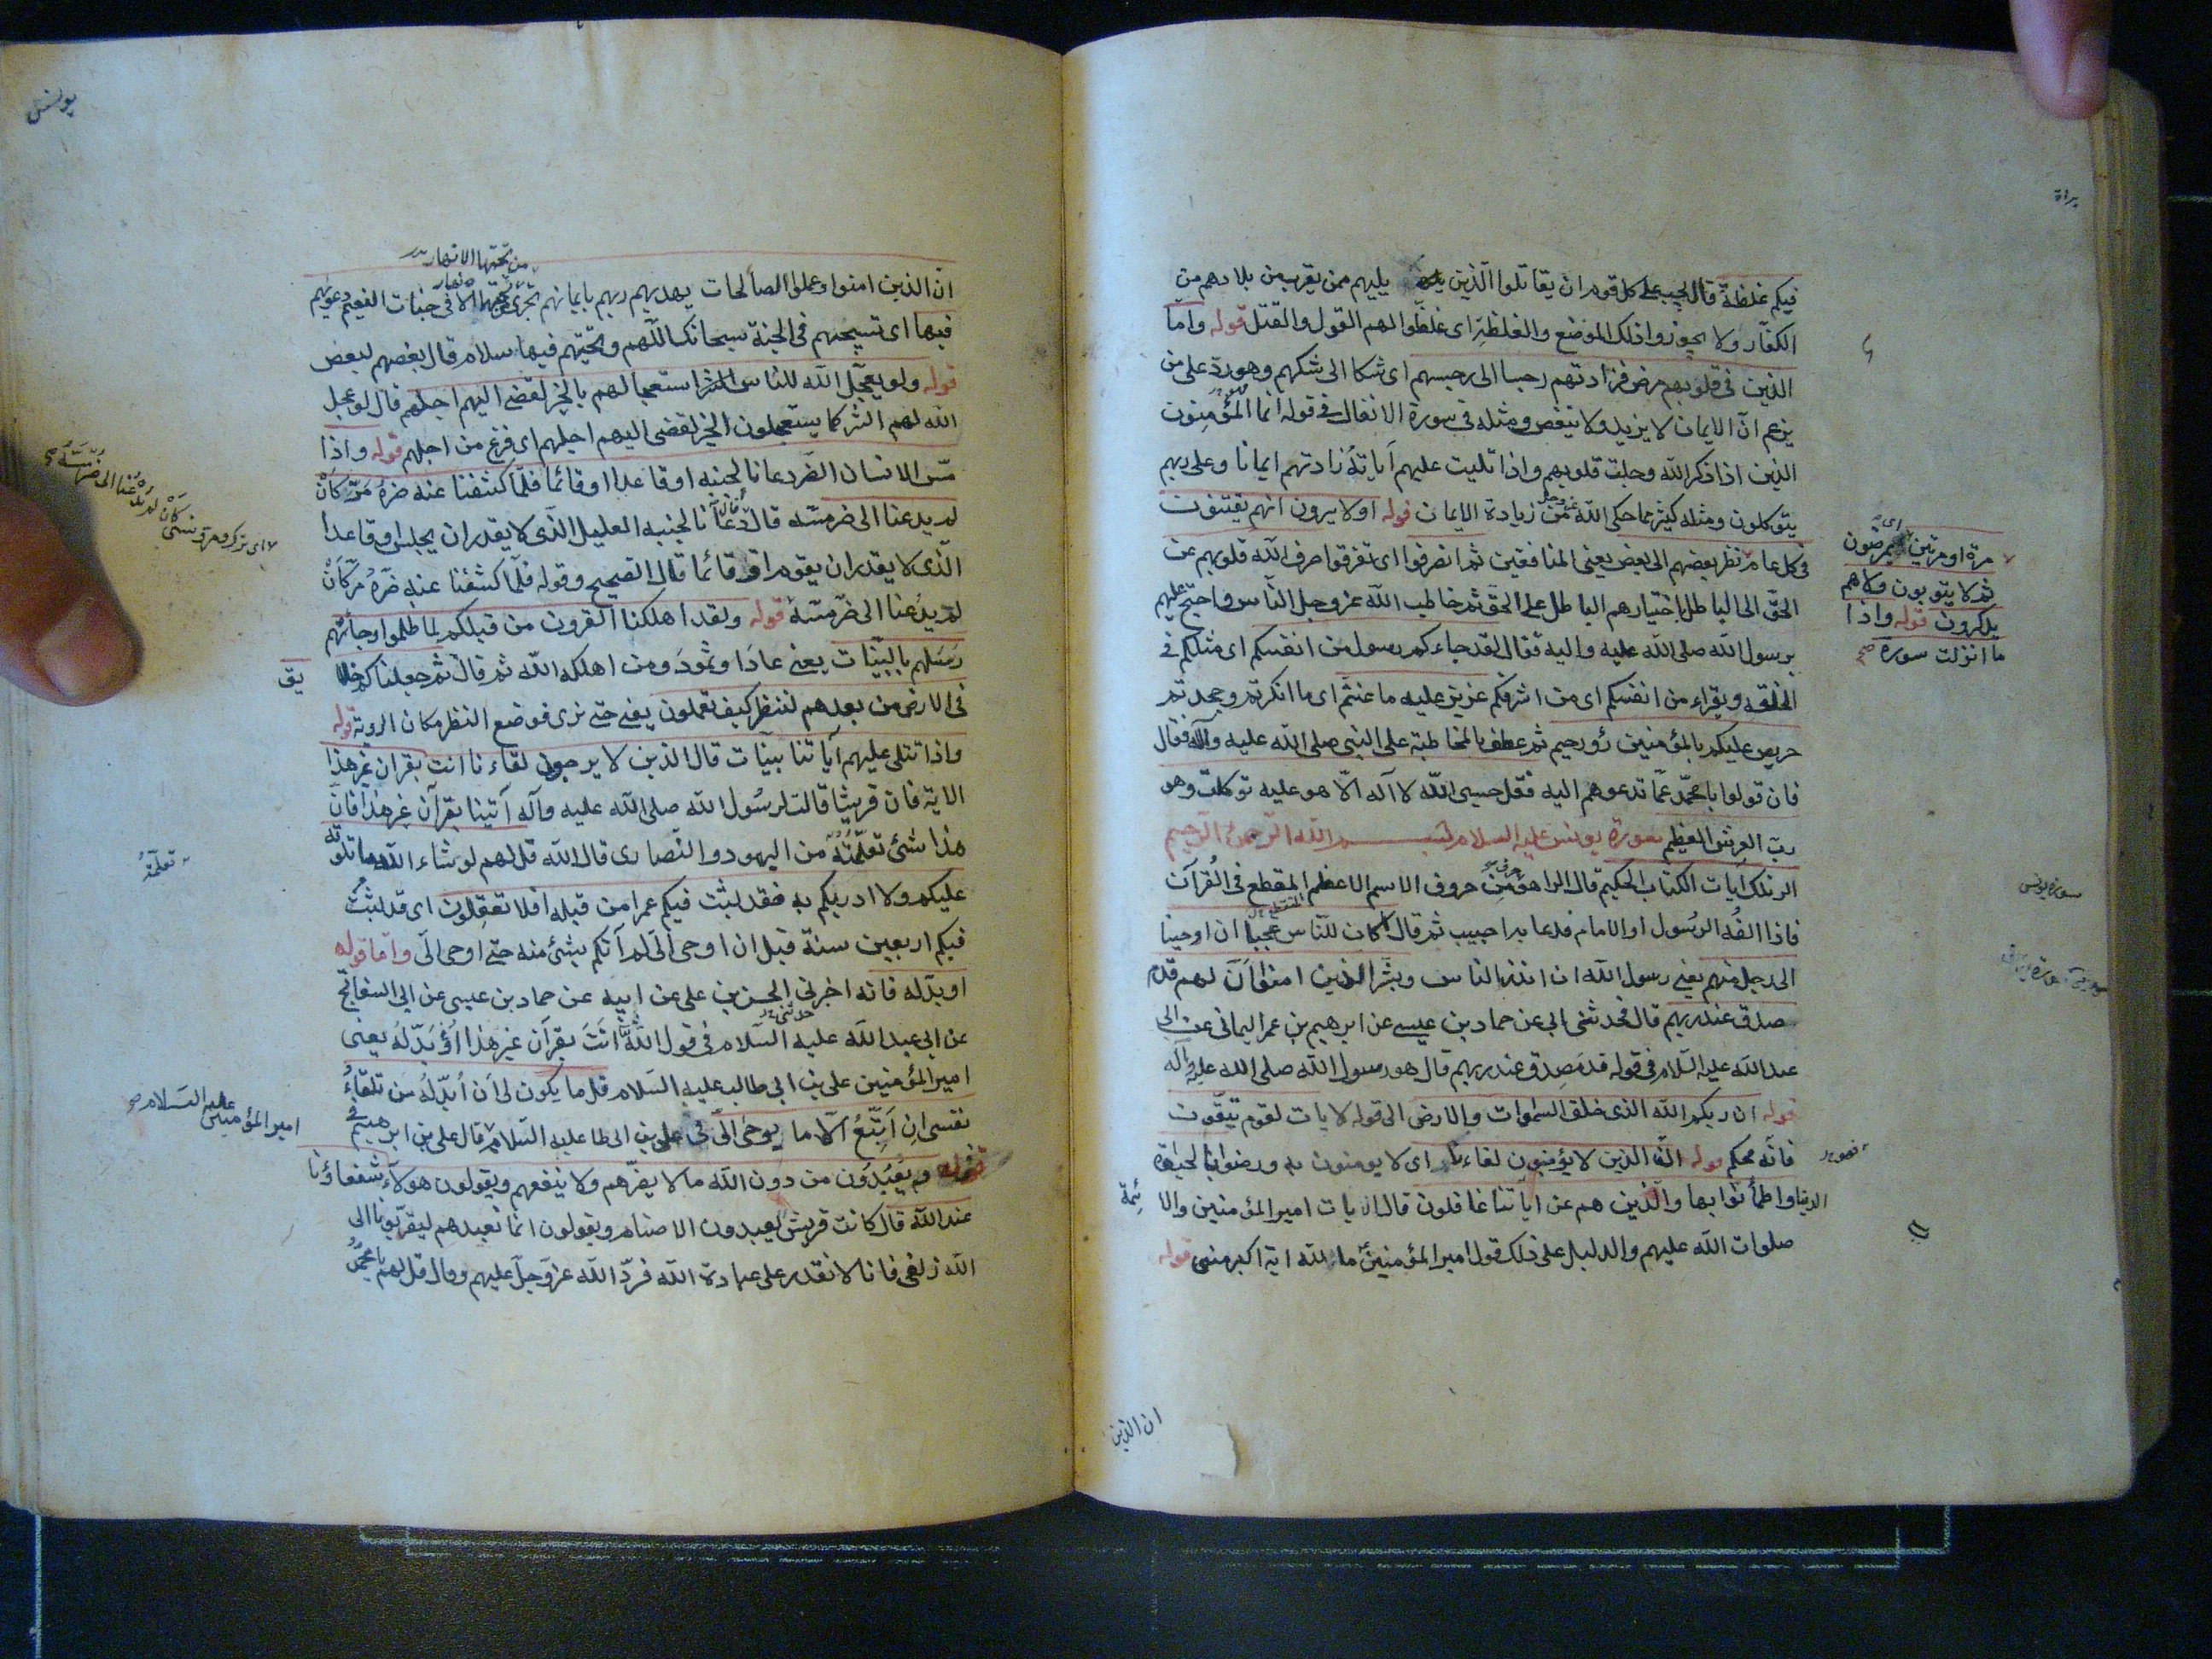 براة
فيكم غلظة قال يجب على كل قوم ان يقاتلوا الذين يليهم ممن يقرب من بلادهم من
الكفار ولا يجوز واذلك الموضع والغلظة اى غلظوا لهم القول والقتل قوله واما
الذين فى قلوبهم مرض فزادتهم رجسا الى رجسهم اى شكا الى شكهم وهو رد على من
يزعم ان الايمان لا يزيد ولا ينقص ومثله فى سورة الانفال فى قوله انما المؤمنون
الذين اذا ذكر الله وجلت قلوبهم واذا تليت عليهم آياته زادتهم ايمانا وعلى ربهم
يتوكلون ومثله كثير مما حكى الله عز وجل من زيادة الايمان قوله اولا يرون انهم يفتنون
فى كل عام نظر بعضهم الى بعض يعنى المنافقين ثم انصرفوا اى تفرقوا صرف الله قلوبهم عن
مرة او مرتين اى يمرضون
ثم لا يتوبون ولا هم
يذكرون قوله واذا
ما انزلت سورة صح
الحق الى الباطل باختيارهم الباطل على الحق ثم خاطب الله عز وجل الناس واحتج عليهم
برسول الله صلى الله عليه واليه فقال لقد جاءكم رسول من انفسكم اى مثلكم فى
الخلقه ويقراء من انفسكم اى من اشرفكم عزيز عليه ما عنتم اى ما انكرتم وجحدتم
حريص عليكم بالمؤمنين رؤ رحيم ثم عطف بالمخاطبة على النبى صلى الله عليه وآله فقال
فان تولوا يا محمد عما تدعوهم اليه فقل حسبى الله لا آله الا هو عليه توكلت وهو
رب العرش العظيم سورة يونس عليه السلام بسم الله الرحمن الرحيم
الر تلك آيات الكتاب الحكيم قال الر هو حرف من حروف الاسم الاعظم المقطع فى القرآن
سورة يونس
فاذا الفه الرسول او الامام فدعا به اجيب ثم قال اكان للناس عجبا ان اوحينا
الى رجل منهم يعنى رسول الله ان انذر الناس وبشر الذين امنوا ان لهم قدم
صدق عند ربهم قال فحدثنى ابى عن حماد بن عيسى عن ابرهيم بن عمر اليمانى عن ابى
عبد الله عليه السلام فى قوله قدم صدق عند ربهم قال هو رسول الله صلى الله عليه وآله
قوله ان ربكم الله الذى خلق السموات والارض الى قوله لايات لقوم يتقون
فانه محكم قوله ان الذين لا يؤمنون لقاءنا اى لا يومنون به ورضوا بالحيوة
الدنيا واطمأنوا بها والذين هم عن اياتنا غافلون قال الايات امير المؤمنين والائمة
صلوات الله عليهم والدليل على ذلك قول امير المؤمنين ما لله اية اكبر منى قوله
ان الذين
يونس
من تحتها الانهار
ان الذين امنوا وعملوا الصالحات يهديهم ربهم بايمانهم تجرى فى جنات النعيم دعويهم
فيها اى تسبيحهم فى الجنة سبحانك اللهم وتحيتهم فيها سلام قال بعضهم لبعض
قوله ولو يعجل الله للناس الشر استعجالهم بالخير لقضى اليهم اجلهم قال لو عجل
الله لهم الشر كما يستعجلون الخير لقضى اليهم اجلهم اى فرغ من اجلهم قوله واذا
مس الانسان الضر دعانا لجنبه او قاعدا او قائما فلما كشفنا عنه ضره مر كان
لم يدعنا الى ضر مسه قال دعانا لجنبه العليل الذى لا يقدر ان يجلس او قاعدا
الذى لا يقدر ان يقوم او قائما قال الصحيح وقوله فلما كشفنا عنه ضره مر كان
لم يدعنا الى ضر مسه قوله ولقد اهلكنا القرون من قبلكم لما ظلموا وجائتهم
اى ترك ومر ونسى كان لم يدعنا الى ضر مسه
رسلهم بالبينات يعنى عادا وثمود ومن اهلكه الله ثم قال ثم جعلناكم خلايق
فى الارض من بعدهم لننظر كيف تعملون يعنى حتى نرى فوضع النظر مكان الروية قوله
واذا تتلى عليهم آياتنا بينات قال الذين لا يرجون لقاءنا ائت بقران غير هذا
الاية فان قريشا قالت لرسول الله صلى الله عليه وآله آتينا بقرآن غير هذا فان
هذا شئ تعلمته من اليهود والنصارى قال الله قل لهم لو شاء الله ما تلوته
تعلمه
عليكم ولا ادريكم به فقد لبثت فيكم عمرا من قبله افلا تعقلون اى قد لبثت
فيكم اربعين سنة قبل ان اوحى الى لم آتكم بشئ منه حتى اوحى الى واما قوله
او بدله فانه اخبرنى الحسن بن على عن ابيه عن حماد بن عيسى عن ابى السفاتج
عن ابى عبد الله عليه السلام فى قول الله ائت بقرآن غير هذا او بدله يعنى
امير المؤمنين على بن ابى طالب عليه السلام قل ما يكون لى ان ابدله من تلقاء
امير المؤمنين عليه السلام
نفسى ان اتبع الا ما يوحى الى فى على بن ابى طا عليه السلام قال على بن ابرهيم فى
قوله ويعبدون من دون الله ما لا يضرهم ولا ينفعهم ويقولون هولاء شفعاؤنا
عند الله قال كانت قريش يعبدون الاصنام ويقولون انما نعبدهم ليقربونا الى
الله زلفى فانا لا نقدر على عبادة الله فرد الله عز وجل عليهم وقال قل لهم يا محمد